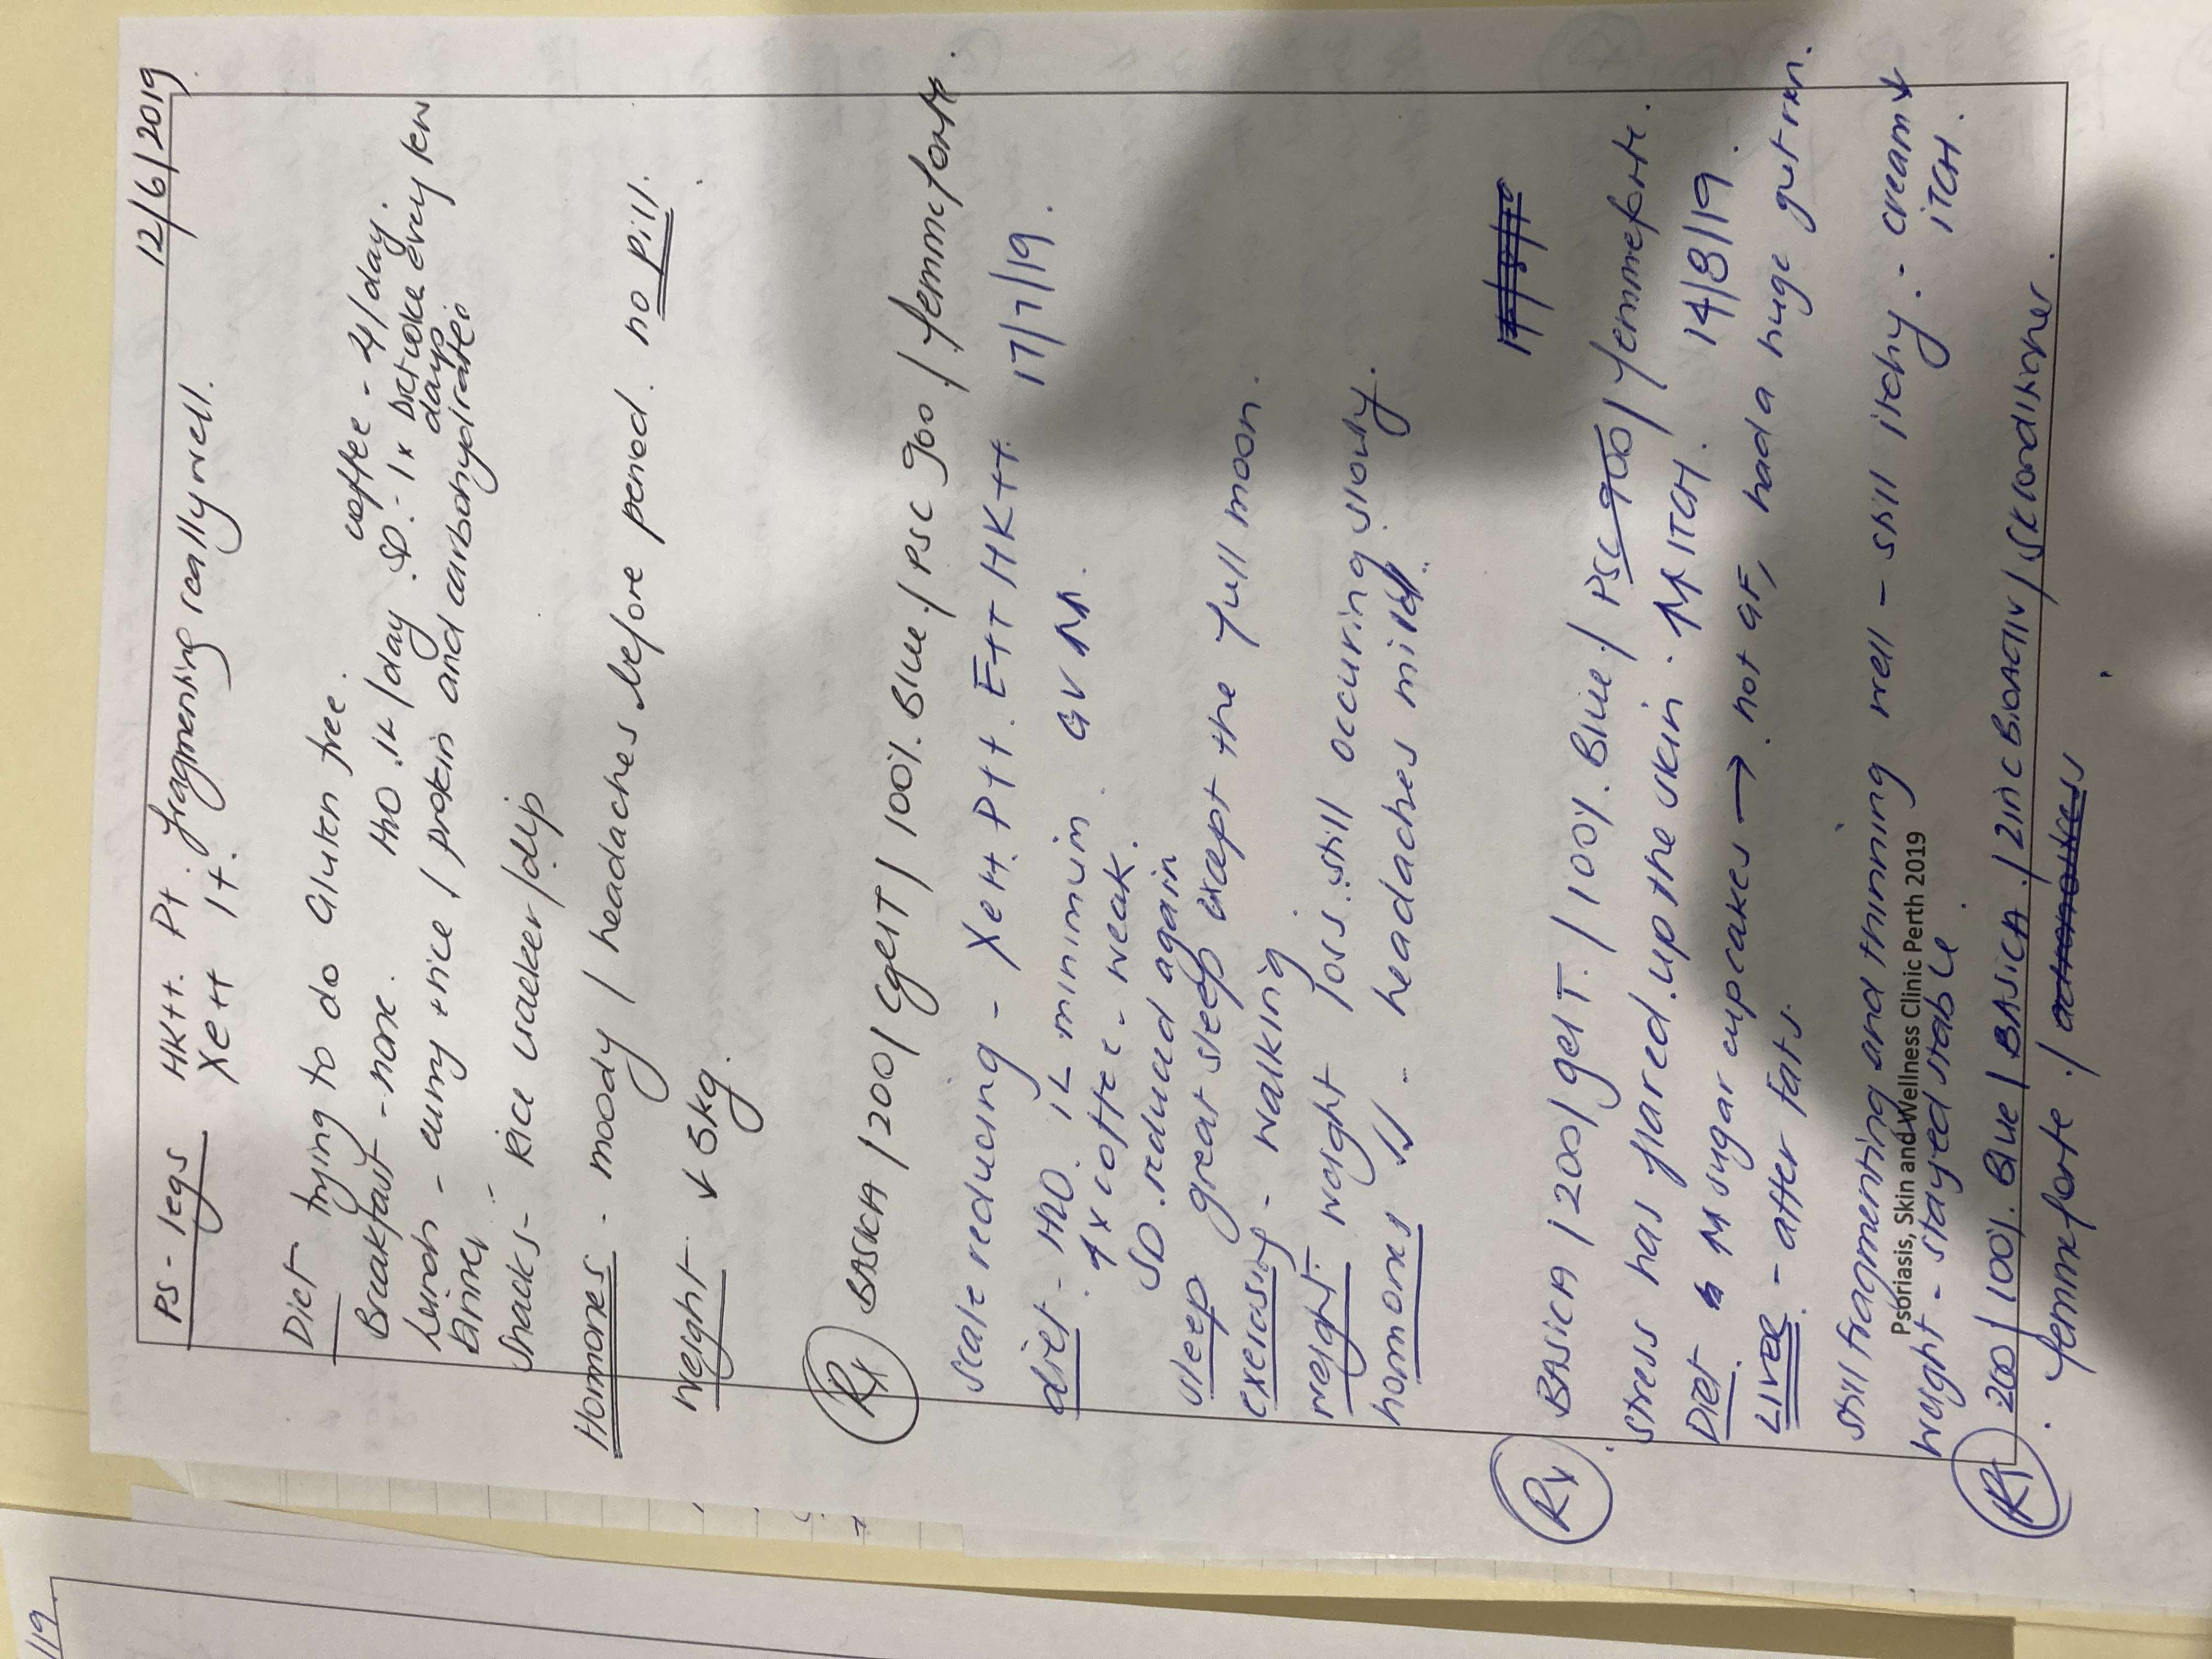 12/6/2019
PS - legs HK++. P+. fragmenting really well.
Xe++ I+.
Diet trying to do Gluten free.
Breakfast - none. H2O .1L/day coffee - 4/day.
Lunch - curry + rice / protein and carbohydrates SD. - 1x Diet coke every few days
Dinner -
Snacks - Rice cracker/dip
Hormones - moody / headaches before period. no pill.
Weight ↓ 5kg.
Rx BASICA / 200 / Cgel T / 100%. Blue / PSC 900 / femmeforte.
Scale reducing - Xe++. P++. E++ HK++. 17/7/19.
diet - H2O. 1L minimum GV
4x coffee - weak.
SD. reduced again
sleep great sleep except the full moon.
exercise - walking
weight weight loss. still occuring slowly.
hormones ↓↓ - headaches mild.
Rx BASICA / 200 / gel T. / 100%. Blue / PSC 900 / femmeforte.
Stress has flared up the skin. ↑↑ ITCH. 14/8/19.
Diet. ↑↑ sugar cupcakes → not GF, had a huge gut rxn.
LIVER - after fats.
Still fragmenting and thinning well - still itchy. - cream ↓ ITCH.
Psoriasis, Skin and Wellness Clinic Perth 2019
weight - stayed stable.
Rx 200 / 100%. Blue / BASICA. / Zinc BIOACTIV / SK conditioner.
femmeforte. /
/19